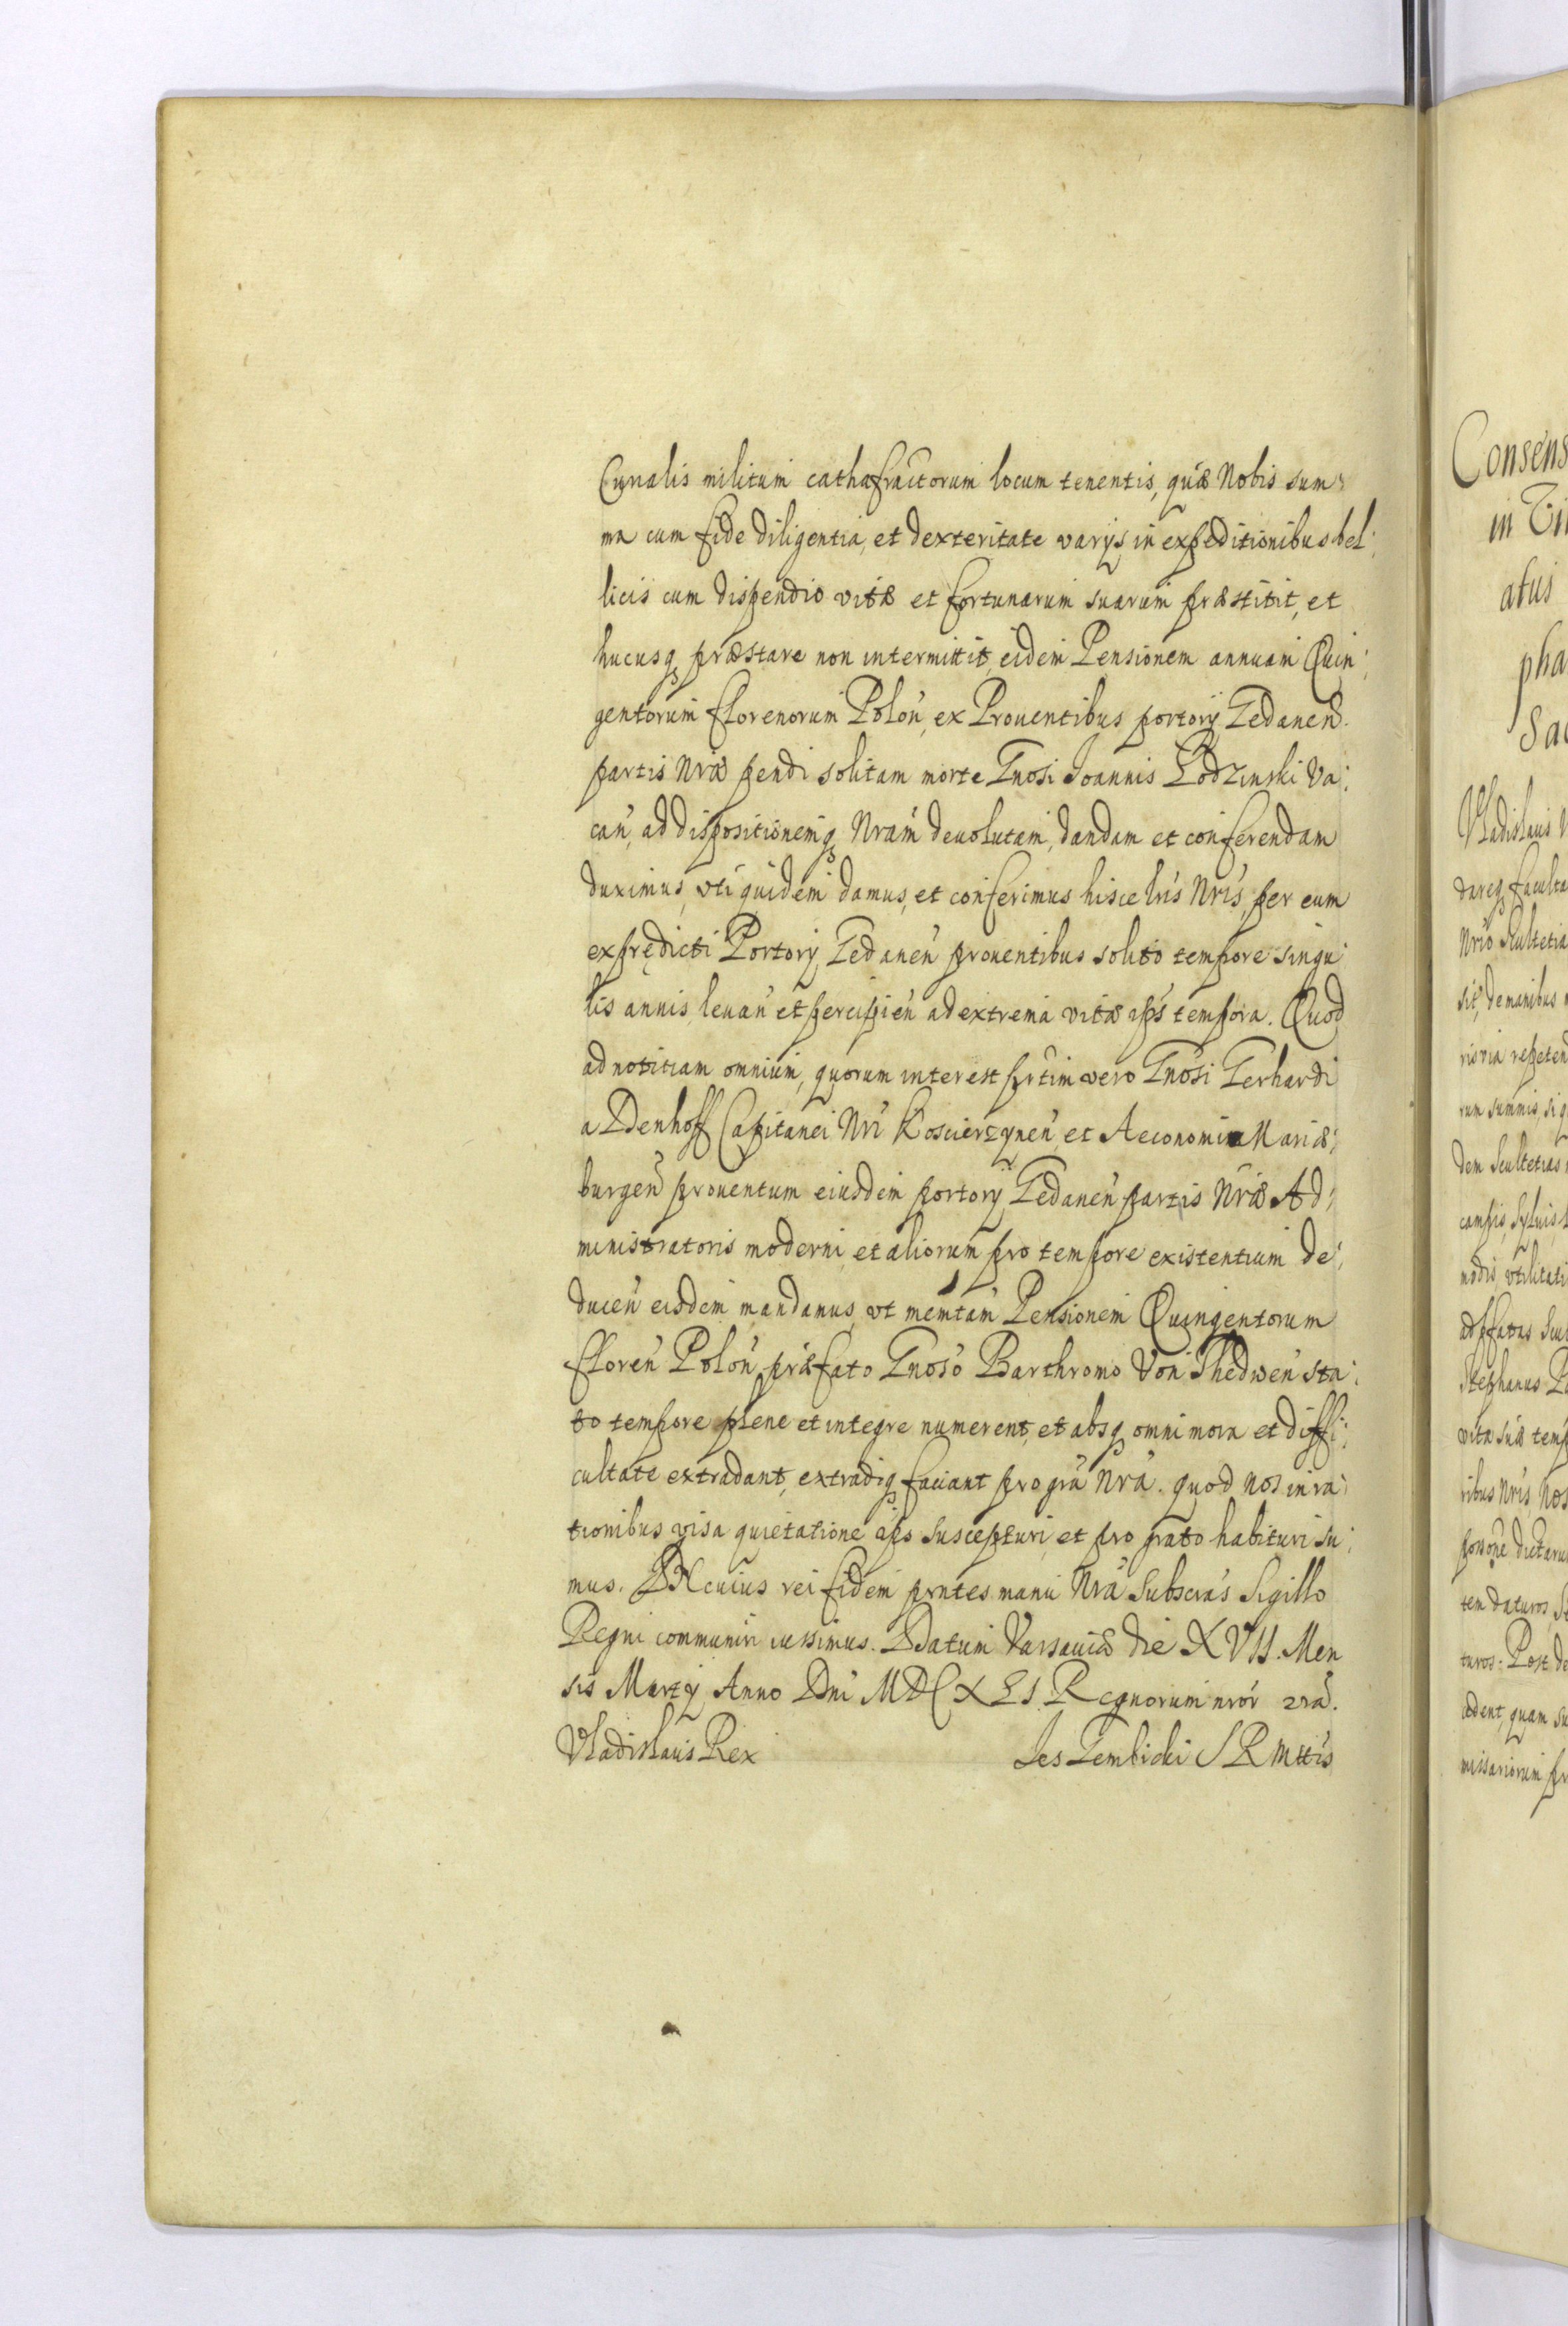 Cunalis militum cathafractorum locum tenentis, quæ Nobis sum
ma cum fide diligentia, et dexteritate varijs in expeditionibus bel:
licis cum dispendio vitæ et fortunarum suarum præstitit, et
hucusq præstare non intermittit, eidem Pensionem annuam Quin:
gentorum florenorum Polon, ex Prouentibus portorij Gedanens.
partis Nræ pendi solitam morte Gnosi Joannis Łodzinski Va:
can, ad dispositionemq Nram deuolutam, dandam et conferendam
duximus, vti quidem damus, et conferimus hisce lris Nris, per eum
ex prędicti Portorij Gedanen prouentibus solito tempore singu
lis annis, leuan et percipien ad extrema vitæ ips tempora. Quod
ad notitiam omnium, quorum interest prtim vero Gnosi Gerhardi
a Denhoff Capitanei Nri Koscierzynen et Aeconomiæ Mariæ:
burgen prouentum eiusdem portorij Gedanen partis Nræ Ad:
ministratoris moderni, et aliorum pro tempore existentium de:
ducen eisdem mandamus, vt memtam Pensionem Quingentorum
floren Polon præfato Gnoso Barthromo Von Thedwen sta:
to tempore plene et integre numerent, et absq omni mora et diffi:
cultate extradant, extradiq faciant pro gra Nra. quod nos in ra:
tionibus visa quietatione ips suscepturi, et pro grato habituri su:
mus. IN cuius rei fidem prntes manu Nra Subscras Sigillo
Regni communiri iussimus. Datum Varsauiæ die XVII. Men
sis Martij Anno Dni MDCXLI Regnorum nror
Vladislaus Rex Jes Gembicki S R Mttis
Consens
in
atus
pha
Sac
Vladislaus
dareq faculta
Nrio Scultetia
sit, de manibus
rum summis, sig
dem Scultetias
campis, syluis,
modis vtilitati
ad pfatas Scul
Stephanus
vitæ suæ temp
ribus Nris Nos
tem daturos
turos. Post de
cedent, quam su
missariorum pr